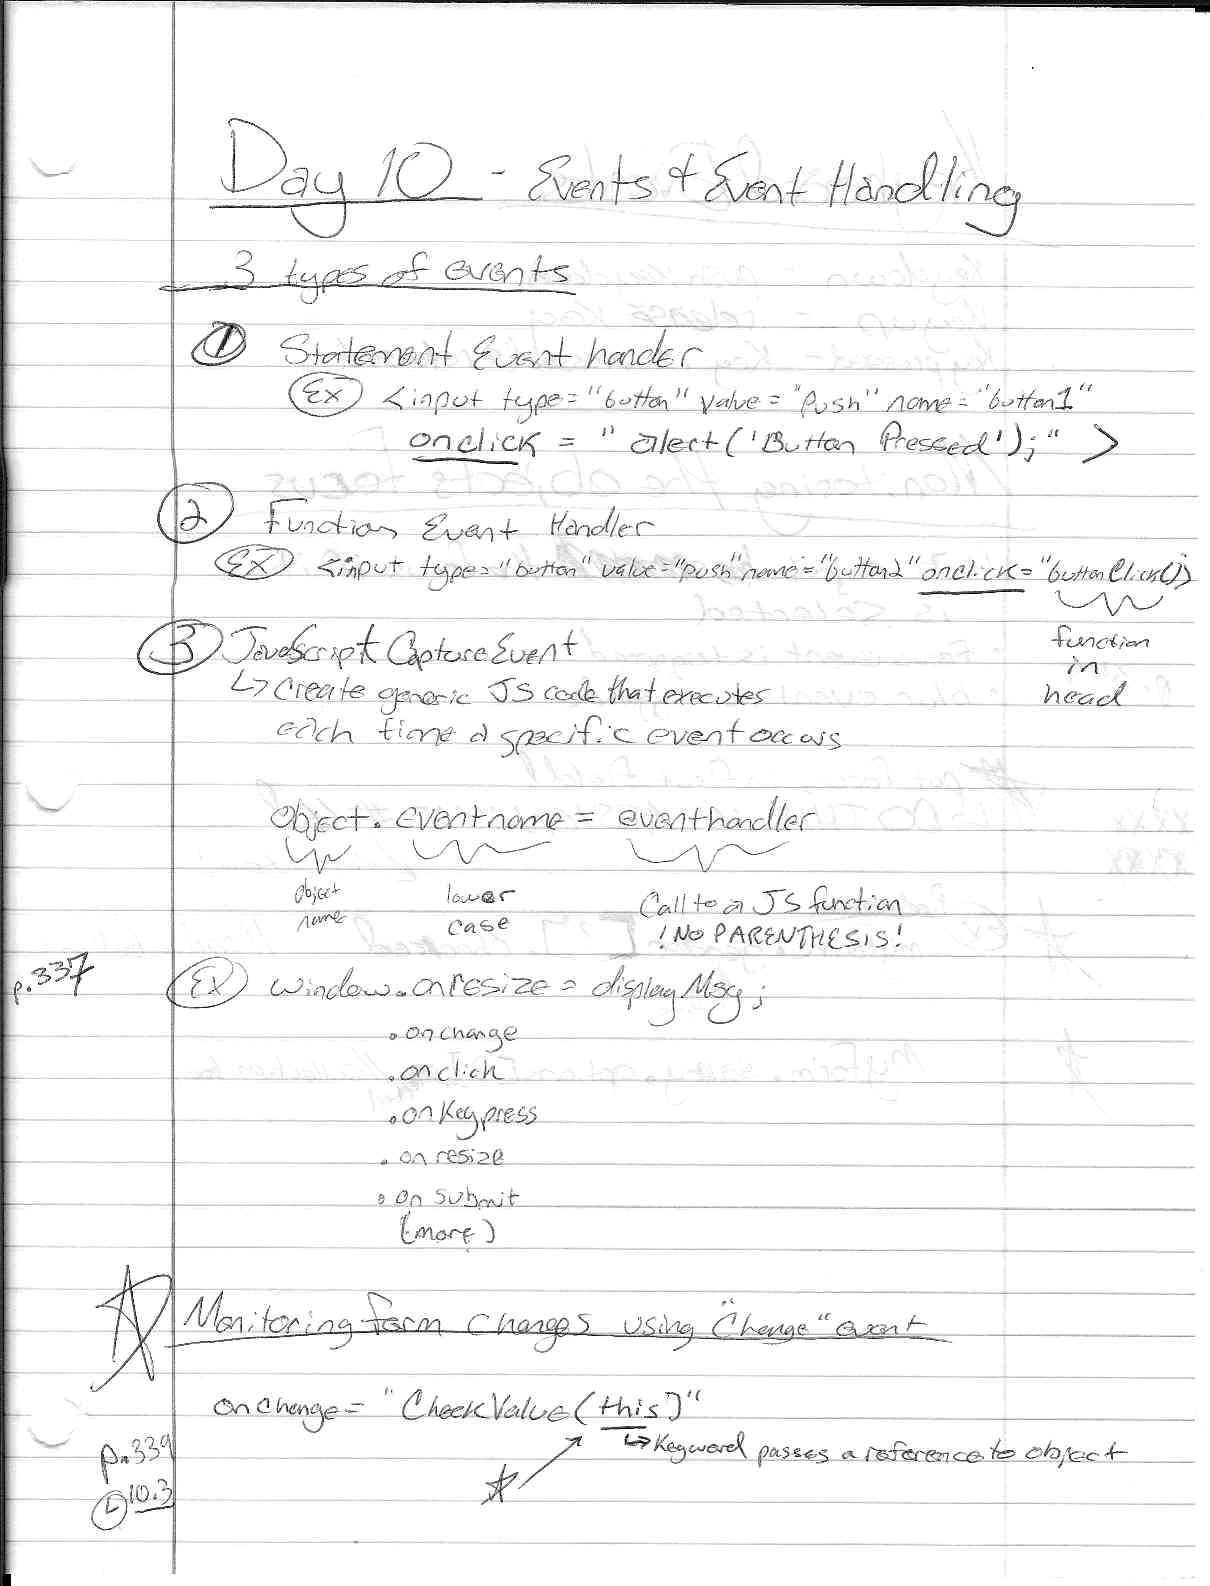 Day 10 - Events & Event Handling
3 types of events
① Statement Event hander
Ex <input type="button" value="Push" name="button1"
onclick = "alert('Button Pressed');" >
② Function Event Handler
Ex <input type="button" value="push" name="button2" onclick="buttonClick()>
function
in
head
③ JavaScript Capture Event
↳ Create generic JS code that executes
each time a specific event occurs
Object.eventname = eventhandler
object
name
lower
case
Call to a JS function
!NO PARENTHESIS!
p.337
Ex window.onresize = displayMsg;
.onchange
.onclick
.onKeypress
.onresize
.onSubmit
(more)
Monitoring form changes using "Change" event
onChange = "CheckValue(this)"
↳ Keyword passes a reference to object
p.339
L 10.3